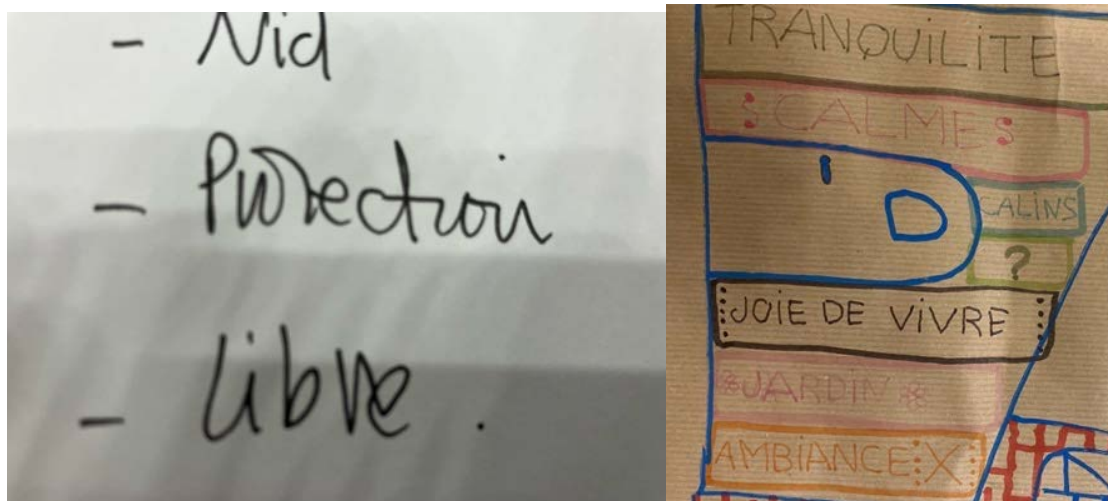 - Nid
- Protection
- Libre.
TRANQUiLiTE
CALMES
CALiNS
?
JOiE DE ViVRE
JARDiN
AMBiANCE X